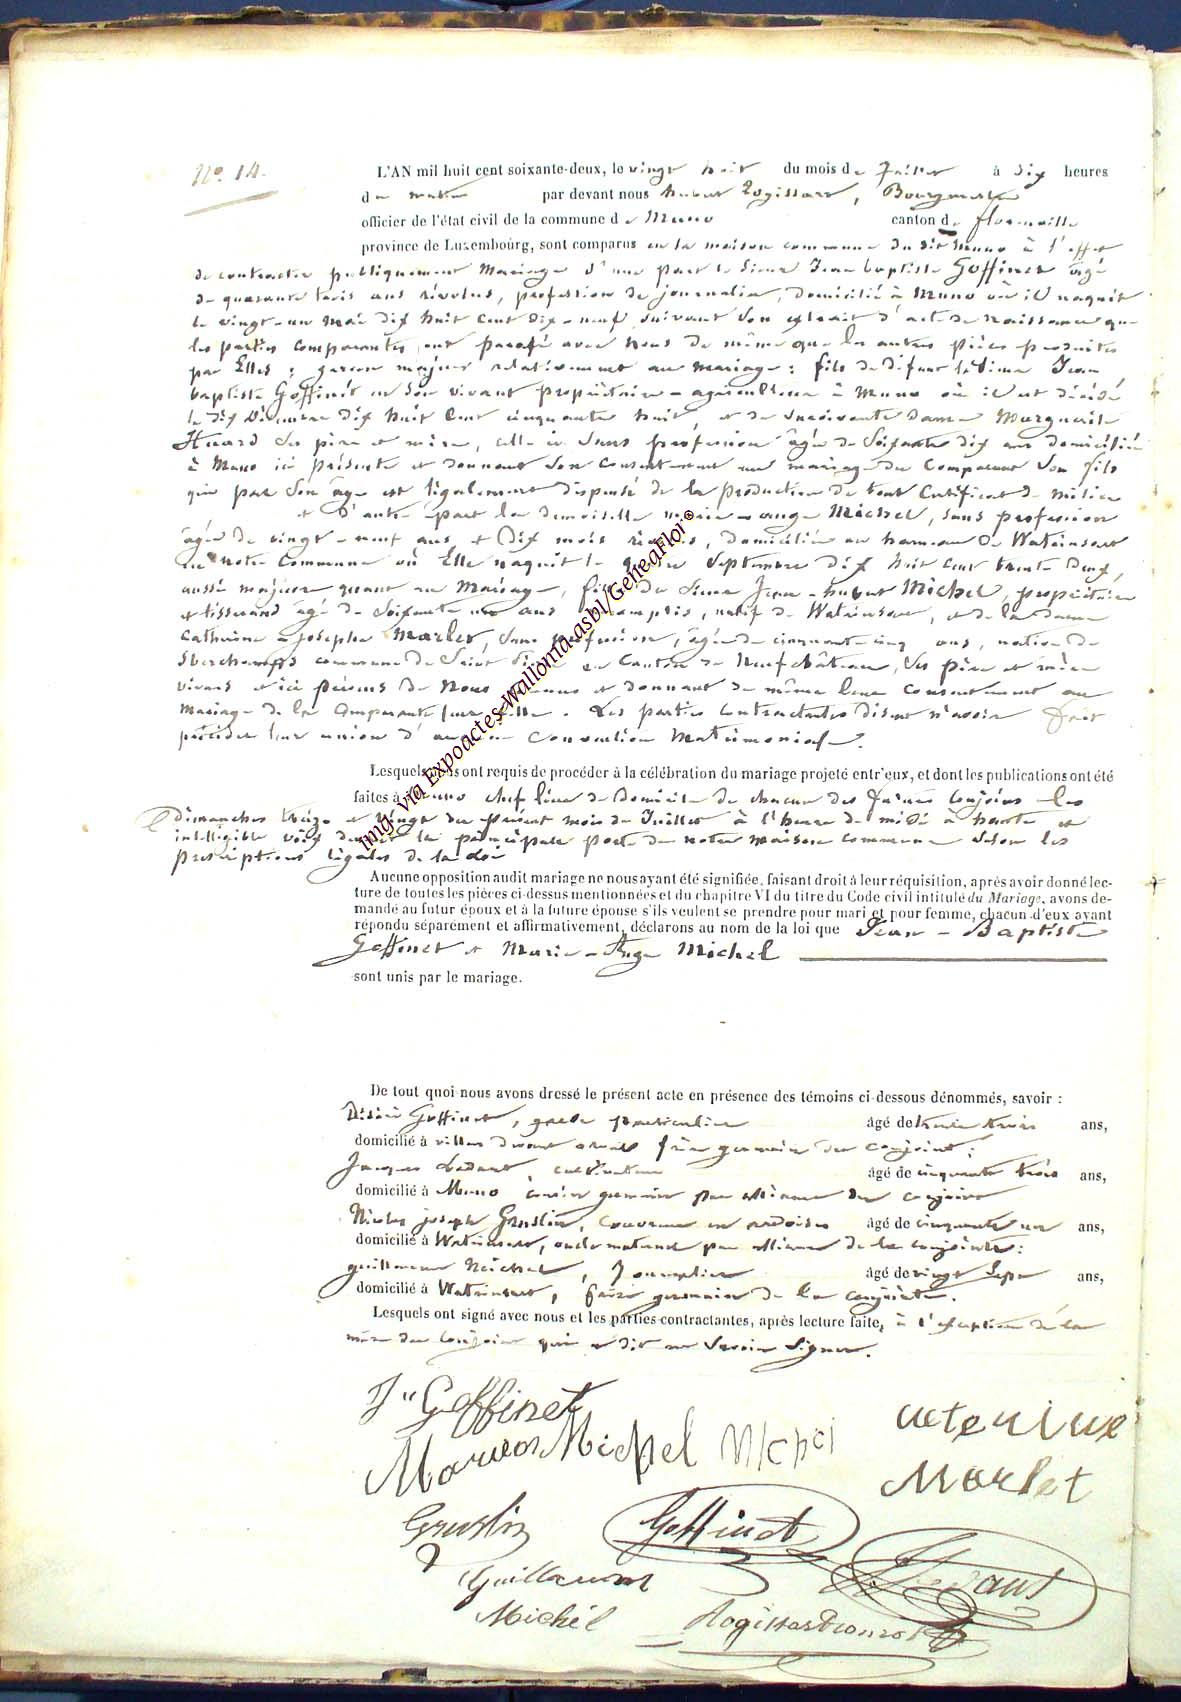 No. 14.
L'AN mil huit cent soixante-deux, le vingt huit du mois de Juillet à dix heures
du matin par devant nous hubert Rogissart, Bourgmestre
officier de l'état civil de la commune de Muno canton de florenville
province de Luxembourg, sont comparus en la maison commune du dit Muno à l'effet
de contracter publiquement Mariage d'une part le Sieur Jean baptiste Goffinet âgé
de quarante trois ans révolus, profession de journalier, domicilié à Muno où il naquit
le vingt-un Mai dix huit cent dix-neuf suivant son extrait d'acte de naissance que
les parties comparantes ont parafé avec nous de même que les autres pièces produites
par Elles; garçon majeur relativement au mariage; fils de défunt le Sieur Jean
baptiste Goffinet en son vivant propriétaire-agriculteur à Muno où il est décédé
le dix Décembre dix huit cent cinquante huit, et de survivante dame Marguerite
Huard ses père et mère, celle ci sans profession âgée de soixante dix ans domiciliée
à Muno ici présente et donnant son consentement au mariage du Comparant son fils
qui par son âge est légalement dispensé de la production de tout Certificat de milice
et d'autre part la demoiselle Marie-ange Michel, sans profession
âgée de vingt-neuf ans et dix mois révolus, domiciliée au hameau de Watrinsart
de notre Commune où Elle naquit le Septembre dix huit cent trente deux,
aussi majeure quant au Mariage, fille du Sieur Jean-hubert Michel, propriétaire
et tisserand âgé de soixante un ans accomplis, natif de Watrinsart, et de la dame
Catherine-Josephe Marlet, sans profession, âgée de cinquante cinq ans, native de
Sberchamps commune de Saint Pierre au Canton de Neufchâteau, ses père et mère
vivants et ici présents de nous connus et donnant de même leur consentement au
mariage de la Comparante leur fille. Les parties contractantes disent n'avoir fait
précéder leur union d'aucune Convention Matrimoniale.
Lesquels nous ont requis de procéder à la célébration du mariage projeté entr'eux, et dont les publications ont été
faites à Muno chef lieu de Domicile de chacun des futurs Conjoints les
Dimanches treize et vingt du présent mois de Juillet à l'heure de midi à haute et
intelligible voix devant la principale porte de notre maison commune selon les
prescriptions légales de la Loi
Aucune opposition audit mariage ne nous ayant été signifiée, faisant droit à leur réquisition, après avoir donné lec-
ture de toutes les pièces ci-dessus mentionnées et du chapitre VI du titre du Code civil intitulé du Mariage, avons de-
mandé au futur époux et à la future épouse s'ils veulent se prendre pour mari et pour femme, chacun d'eux ayant
répondu séparément et affirmativement, déclarons au nom de la loi que Jean-Baptiste
Goffinet et Marie-Ange Michel
sont unis par le mariage.
De tout quoi nous avons dressé le présent acte en présence des témoins ci-dessous dénommés, savoir :
Désiré Goffinet, garde particulier âgé de trente trois ans,
domicilié à villers devant orval frère germain du conjoint;
Jacques Ledant, cultivateur âgé de cinquante trois ans,
domicilié à Muno cousin germain par alliance du conjoint
Nicolas joseph Gruslin, couvreur en ardoises âgé de cinquante un ans,
domicilié à Watrinsart, oncle maternel par alliance de la conjointe;
guillaume Michel, Journalier âgé de vingt Sept ans,
domicilié à Watrinsart, frère germain de la conjointe.
Lesquels ont signé avec nous et les parties contractantes, après lecture faite, à l'exception de la
mère du conjoint qui a dit ne savoir signer.
J Goffinet
Michel Michel
Marlet
Gruslin Goffinet
Guillaume
Michel Rogissart
Img. via Expoactes-Wallonia-asbl/GeneaFlor©